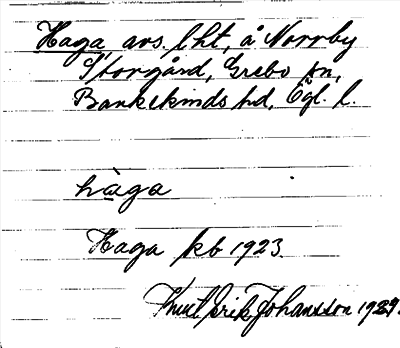 Haga avs. lht, å Norrby
Storgård, Grebo sn,
Bankekinds hd, Ögl. l.
hàga
Haga kb 1923.
Knut Erik Johansson 1929.